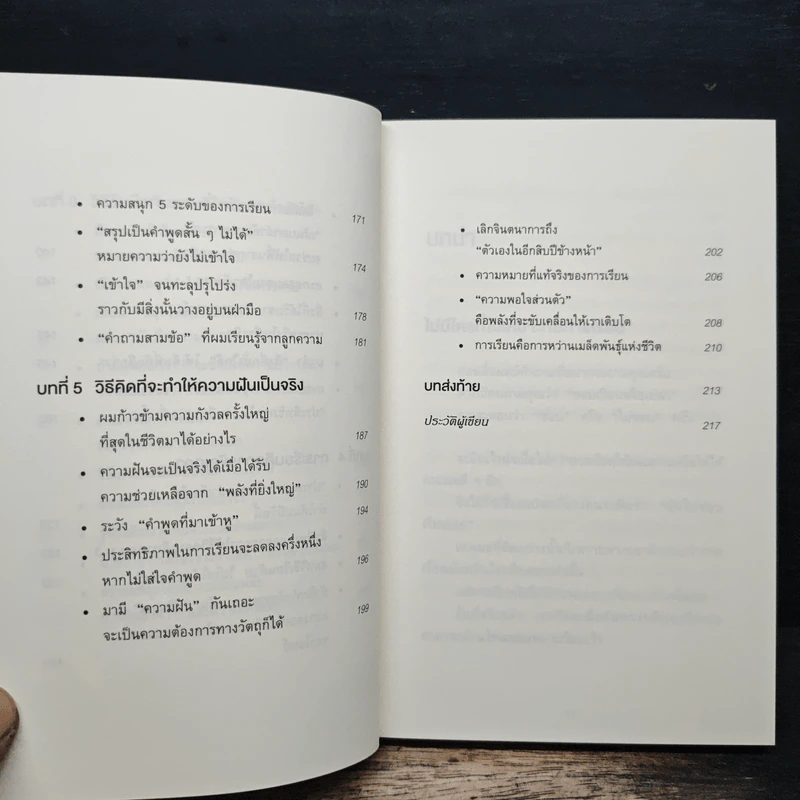 • ความสนุก 5 ระดับของการเรียน 171
• “สรุปเป็นคำพูดสั้น ๆ ไม่ได้”
หมายความว่ายังไม่เข้าใจ 174
• “เข้าใจ” จนทะลุปรุโปร่ง
ราวกับมีสิ่งนั้นวางอยู่บนฝ่ามือ 178
• “คำถามสามข้อ” ที่ผมเรียนรู้จากลูกความ 181
บทที่ 5 วิธีคิดที่จะทำให้ความฝันเป็นจริง
• ผมก้าวข้ามความกังวลครั้งใหญ่
ที่สุดในชีวิตมาได้อย่างไร 187
• ความฝันจะเป็นจริงได้เมื่อได้รับ
ความช่วยเหลือจาก “พลังที่ยิ่งใหญ่” 190
• ระวัง “คำพูดที่มาเข้าหู” 194
• ประสิทธิภาพในการเรียนจะลดลงครึ่งหนึ่ง
หากไม่ใส่ใจคำพูด 196
• มามี “ความฝัน” กันเถอะ
จะเป็นความต้องการทางวัตถุก็ได้ 199
• เลิกจินตนาการถึง
“ตัวเองในอีกสิบปีข้างหน้า” 202
• ความหมายที่แท้จริงของการเรียน 206
• “ความพอใจส่วนตัว”
คือพลังที่จะขับเคลื่อนให้เราเติบโต 208
• การเรียนคือการหว่านเมล็ดพันธุ์แห่งชีวิต 210
บทส่งท้าย 213
ประวัติผู้เขียน 217